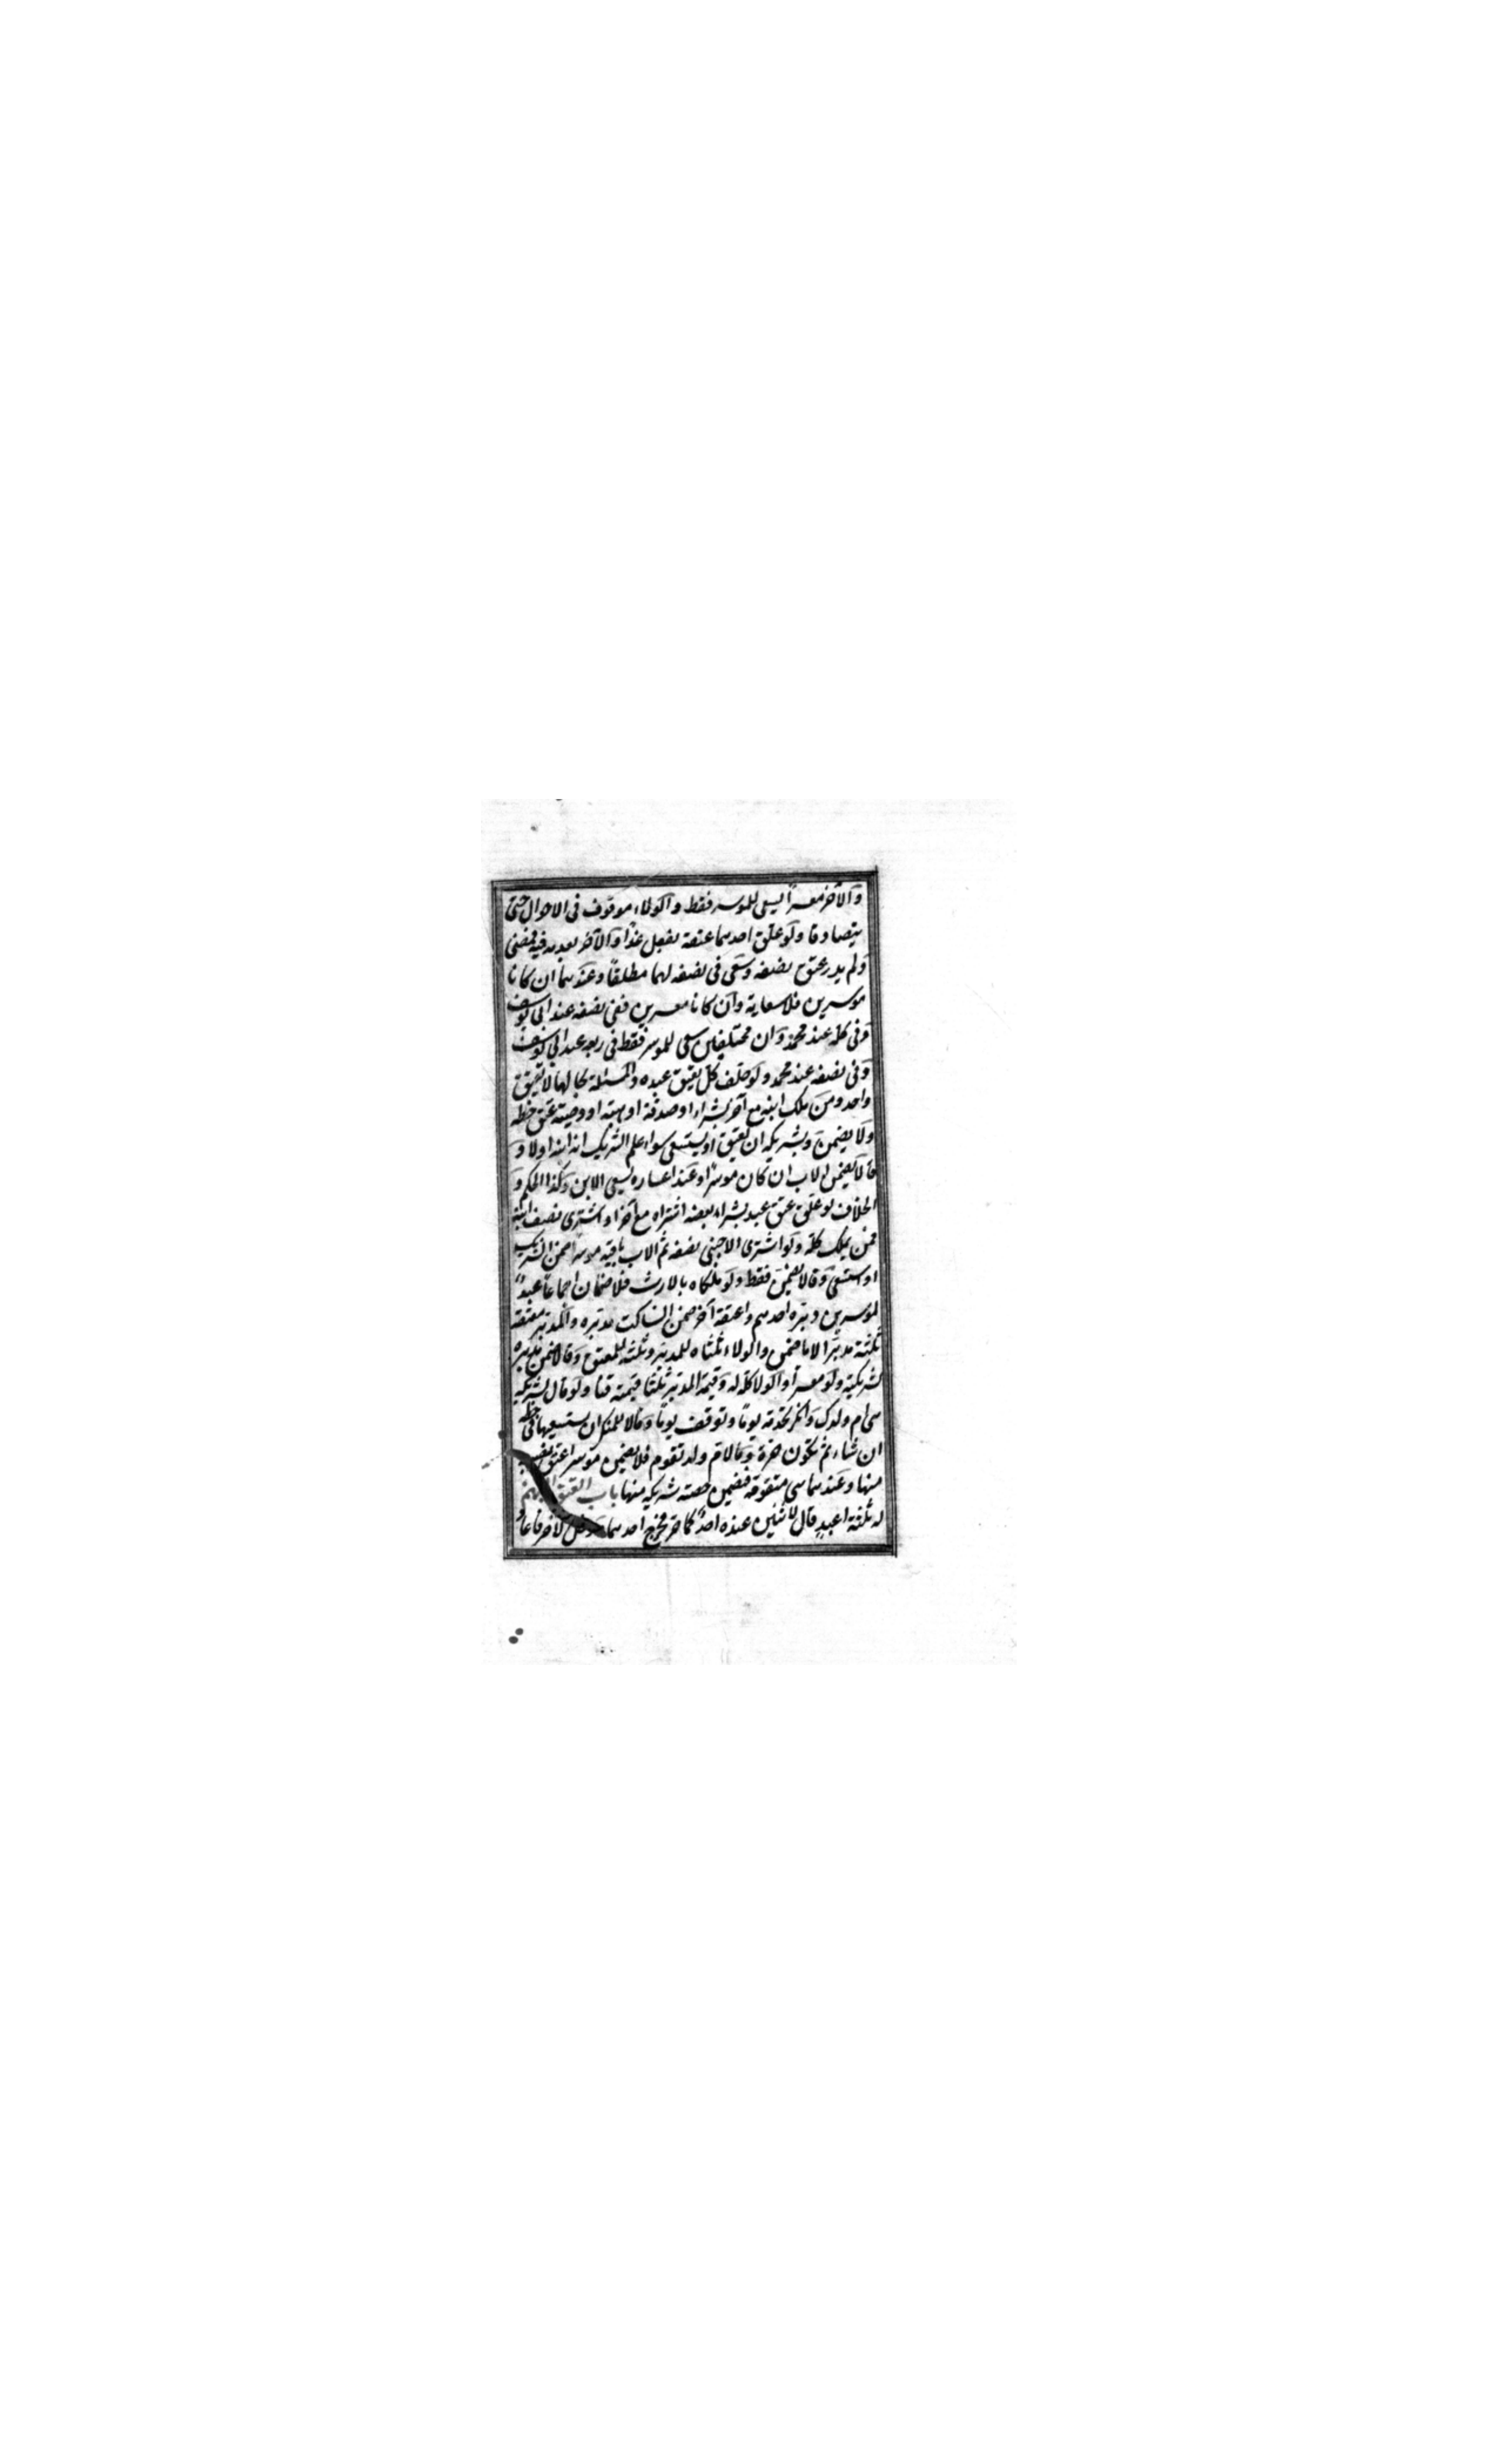 والآخر معسراً يسعى للموسر فقط والولاء موقوف في الاحوال حتى
يتصادقا ولو علق احدهما عتقه بفعل غداً والآخر بعدمه فيه فمضى
ولم يدر عتق نصفه وسعى في نصفه لهما مطلقاً وعندهما ان كانا
موسرين فلا سعاية وان كانا معسرين ففي نصفه عند ابي يوسف
وفي كله عند محمد وان مختلفين سعى للموسر فقط في ربعه عند ابي يوسف
وفي نصفه عند محمد ولو حلف كل بعتق عبده والمسئلة بحالها لا يعتق
واحد ومن ملك ابنه مع آخر بشراء او صدقة او هبة او وصية عتق حظه
ولا يضمن ولشريكه ان يعتق او يستسعى سواء علم الشريك انه ابنه اولا و
قالا يضمن الاب ان كان موسراً وعند اعساره يسعى الابن وكذا الحكم و
الخلاف لو علق عتق عبد بشراء بعضه اشتراه مع آخر او اشترى نصف ابنه
ممن يملك كله ولو اشترى الاجنبي نصفه ثم الاب باقيه موسراً ضمن الشريك
او استسعى وقالا يضمن فقط ولو ملكاه بالارث فلا ضمان اجماعاً عبد
لموسرين دبره احدهم واعتقه آخر ضمن الساكت مدبره والمدبر معتقه
ثلثه مدبراً لا ما ضمن والولاء ثلثاه للمدبر وثلثه للمعتق وقالا ضمن مدبره
لشريكيه ولو معسراً والولا كله له وقيمة المدبر ثلثا قيمته قنا ولو قال لشريكه
هي ام ولدك وانكر تخدمه يوماً وتوقف يوماً وقالا للمنكر ان يستسعيها في حظه
ان شاء ثم تكون حرة وما لام ولد تقوم فلا يضمن موسر اعتق نصيبه
منها وعندهما هي متقومة فيضمن حصة شريكه منها باب العتق المبهم
له ثلثة اعبد قال لاثنين عنده احدكما حر فخرج احدهما ودخل الآخر فاعاد